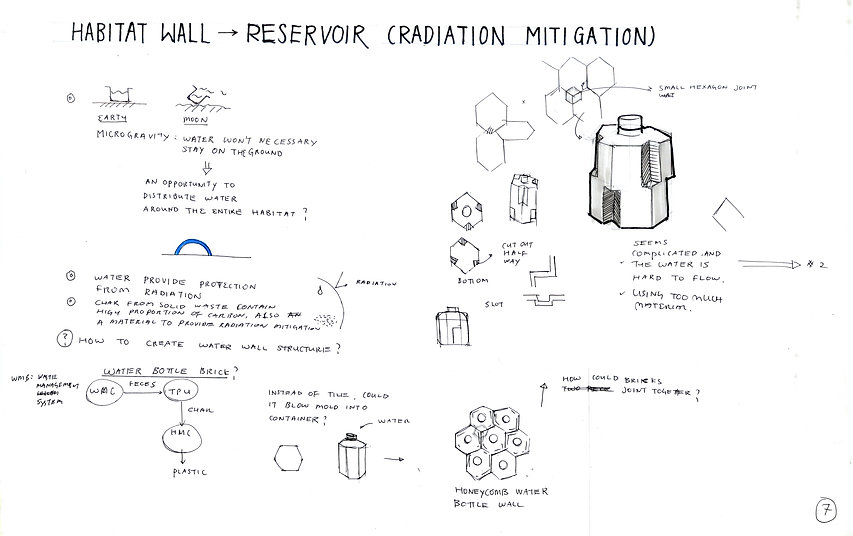 HABITAT WALL → RESERVOIR (RADIATION MITIGATION)
EARTH
MOON
MICROGRAVITY : WATER WON'T NECESSARY
STAY ON THE GROUND
AN OPPORTUNITY TO
DISTRIBUTE WATER
AROUND THE ENTIRE HABITAT ?
WATER PROVIDE PROTECTION
FROM RADIATION
RADIATION
CHAR FROM SOLID WASTE CONTAIN
HIGH PROPORTION OF CARBON, ALSO
A MATERIAL TO PROVIDE RADIATION MITIGATION
? HOW TO CREATE WATER WALL STRUCTURE ?
WATER BOTTLE BRICK ?
WMS :
MANAGEMENT
SYSTEM
WMC
FECES
TPU
CHAR
HMC
PLASTIC
INSTEAD OF TILE, COULD
IT BLOW MOLD INTO
CONTAINER ?
WATER
HONEYCOMB WATER
BOTTLE WALL
HOW COULD BRICKS
JOINT TOGETHER ?
SMALL HEXAGON JOINT
CUT OUT
HALF
WAY
BOTTOM
SLOT
SEEMS
COMPLICATED AND
THE WATER IS
HARD TO FLOW.
USING TOO MUCH
MATERIAL.
# 2
7